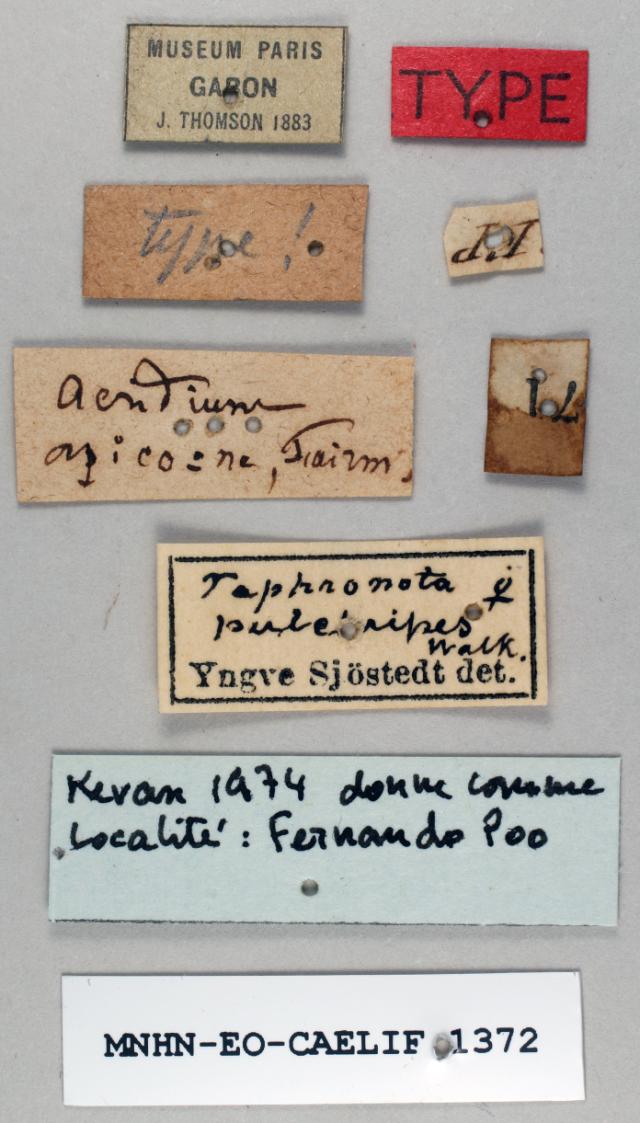 MUSEUM PARIS
GABON
J. THOMSON 1883
TYPE
type !
Acridium
apicorne, Fairm,
71
Taphronota ♀
pulchripes
Walk.
Yngve Sjöstedt det.
Kevan 1974 donne comme
Localité : Fernando Poo
MNHN-EO-CAELIF 1372